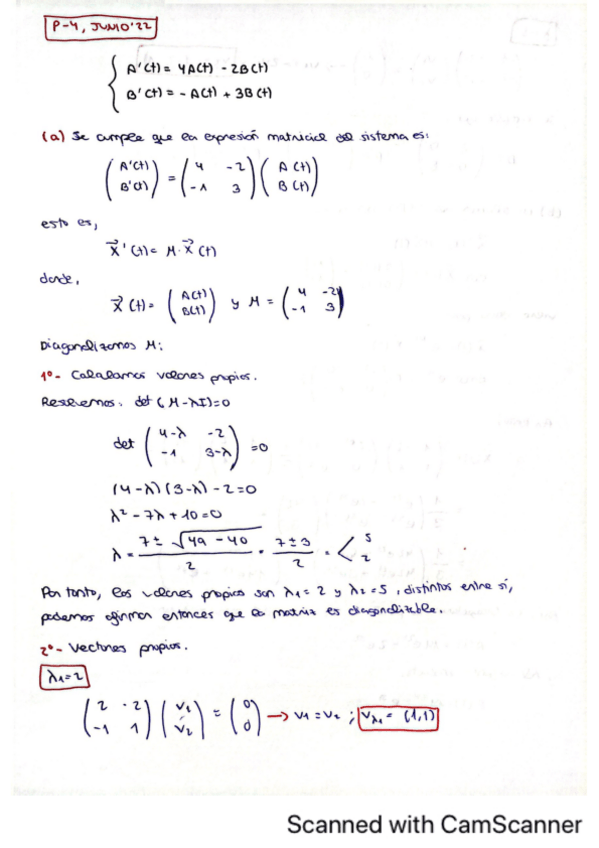 P-4, JUNIO'22
A'(t) = 4A(t) - 2B(t)
B'(t) = -A(t) + 3B(t)
(a) Se cumple que la expresión matricial del sistema es:
(A'(t) B'(t)) = (4 -2 -1 3) (A(t) B(t))
esto es,
X⃗'(t) = M·X⃗(t)
donde,
X⃗(t) = (A(t) B(t)) y M = (4 -2 -1 3)
Diagonalizamos M:
1º- Calculamos valores propios.
Resolvemos: det(M-λI)=0
det (4-λ -2 -1 3-λ) = 0
(4-λ)(3-λ)-2=0
λ² - 7λ + 10 = 0
λ = 7 ± √49 - 40 / 2 = 7 ± 3 / 2 = < 5 2
Por tanto, los valores propios son λ1 = 2 y λ2 = 5, distintos entre sí,
podemos afirmar entonces que la matriz es diagonalizable.
2º- Vectores propios.
λ1=2
(2 -2 -1 1) (v1 v2) = (0 0) → v1 = v2 ; vλ1 = (1,1)
Scanned with CamScanner